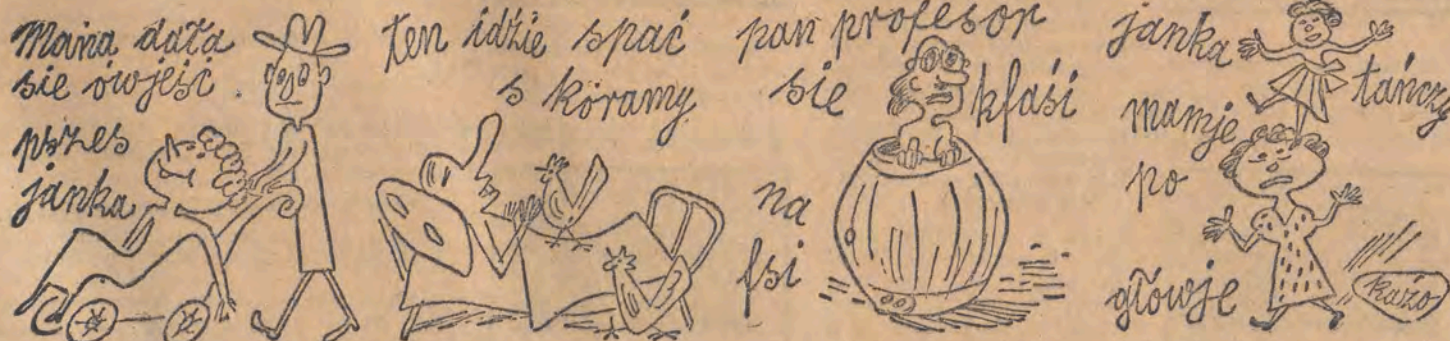 Mańa dała
sie ówjeść
pszes
janka
ten idźie spać
s kóramy
pan profesor
sie kfaśi
na
fsi
janka
tańczy
mamje
po
głowje